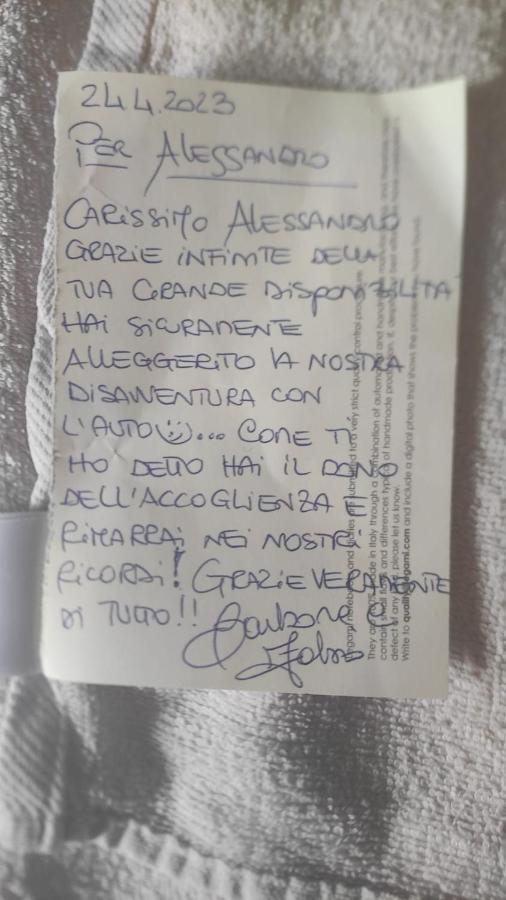 24.4.2023
PER ALESSANDRO
CARISSIMO ALESSANDRO
GRAZIE INFINITE DELLA
TUA GRANDE DISPONIBILITA'
HAI SICURAMENTE
ALLEGGERITO LA NOSTRA
DISAVVENTURA CON
L'AUTO☺... COME TI
HO DETTO HAI IL DONO
DELL'ACCOGLIENZA E
RIMARRAI NEI NOSTRI
RICORDI! GRAZIE VERAMENTE
DI TUTTO!! Barbara e
Fabio
They are 100% made in Italy through a combination of automated and hand
contain small flaws and differences typical of handmade production. If, despite
defect of any kind, please let us know.
Write to quality@legami.com and include a digital photo that shows the problem you have found.